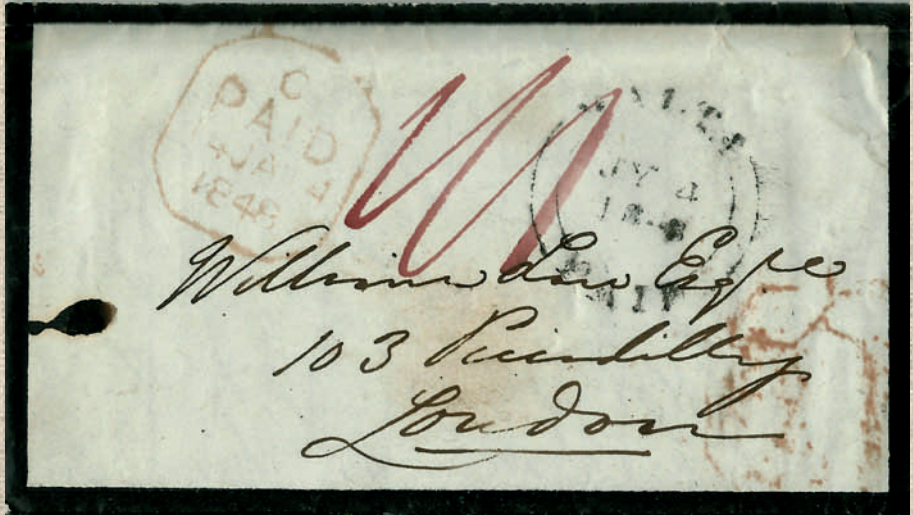 C
PAID
4 JA 4
1848
JY 4
PAID
William Law Esqre
103 Piccadilly
London